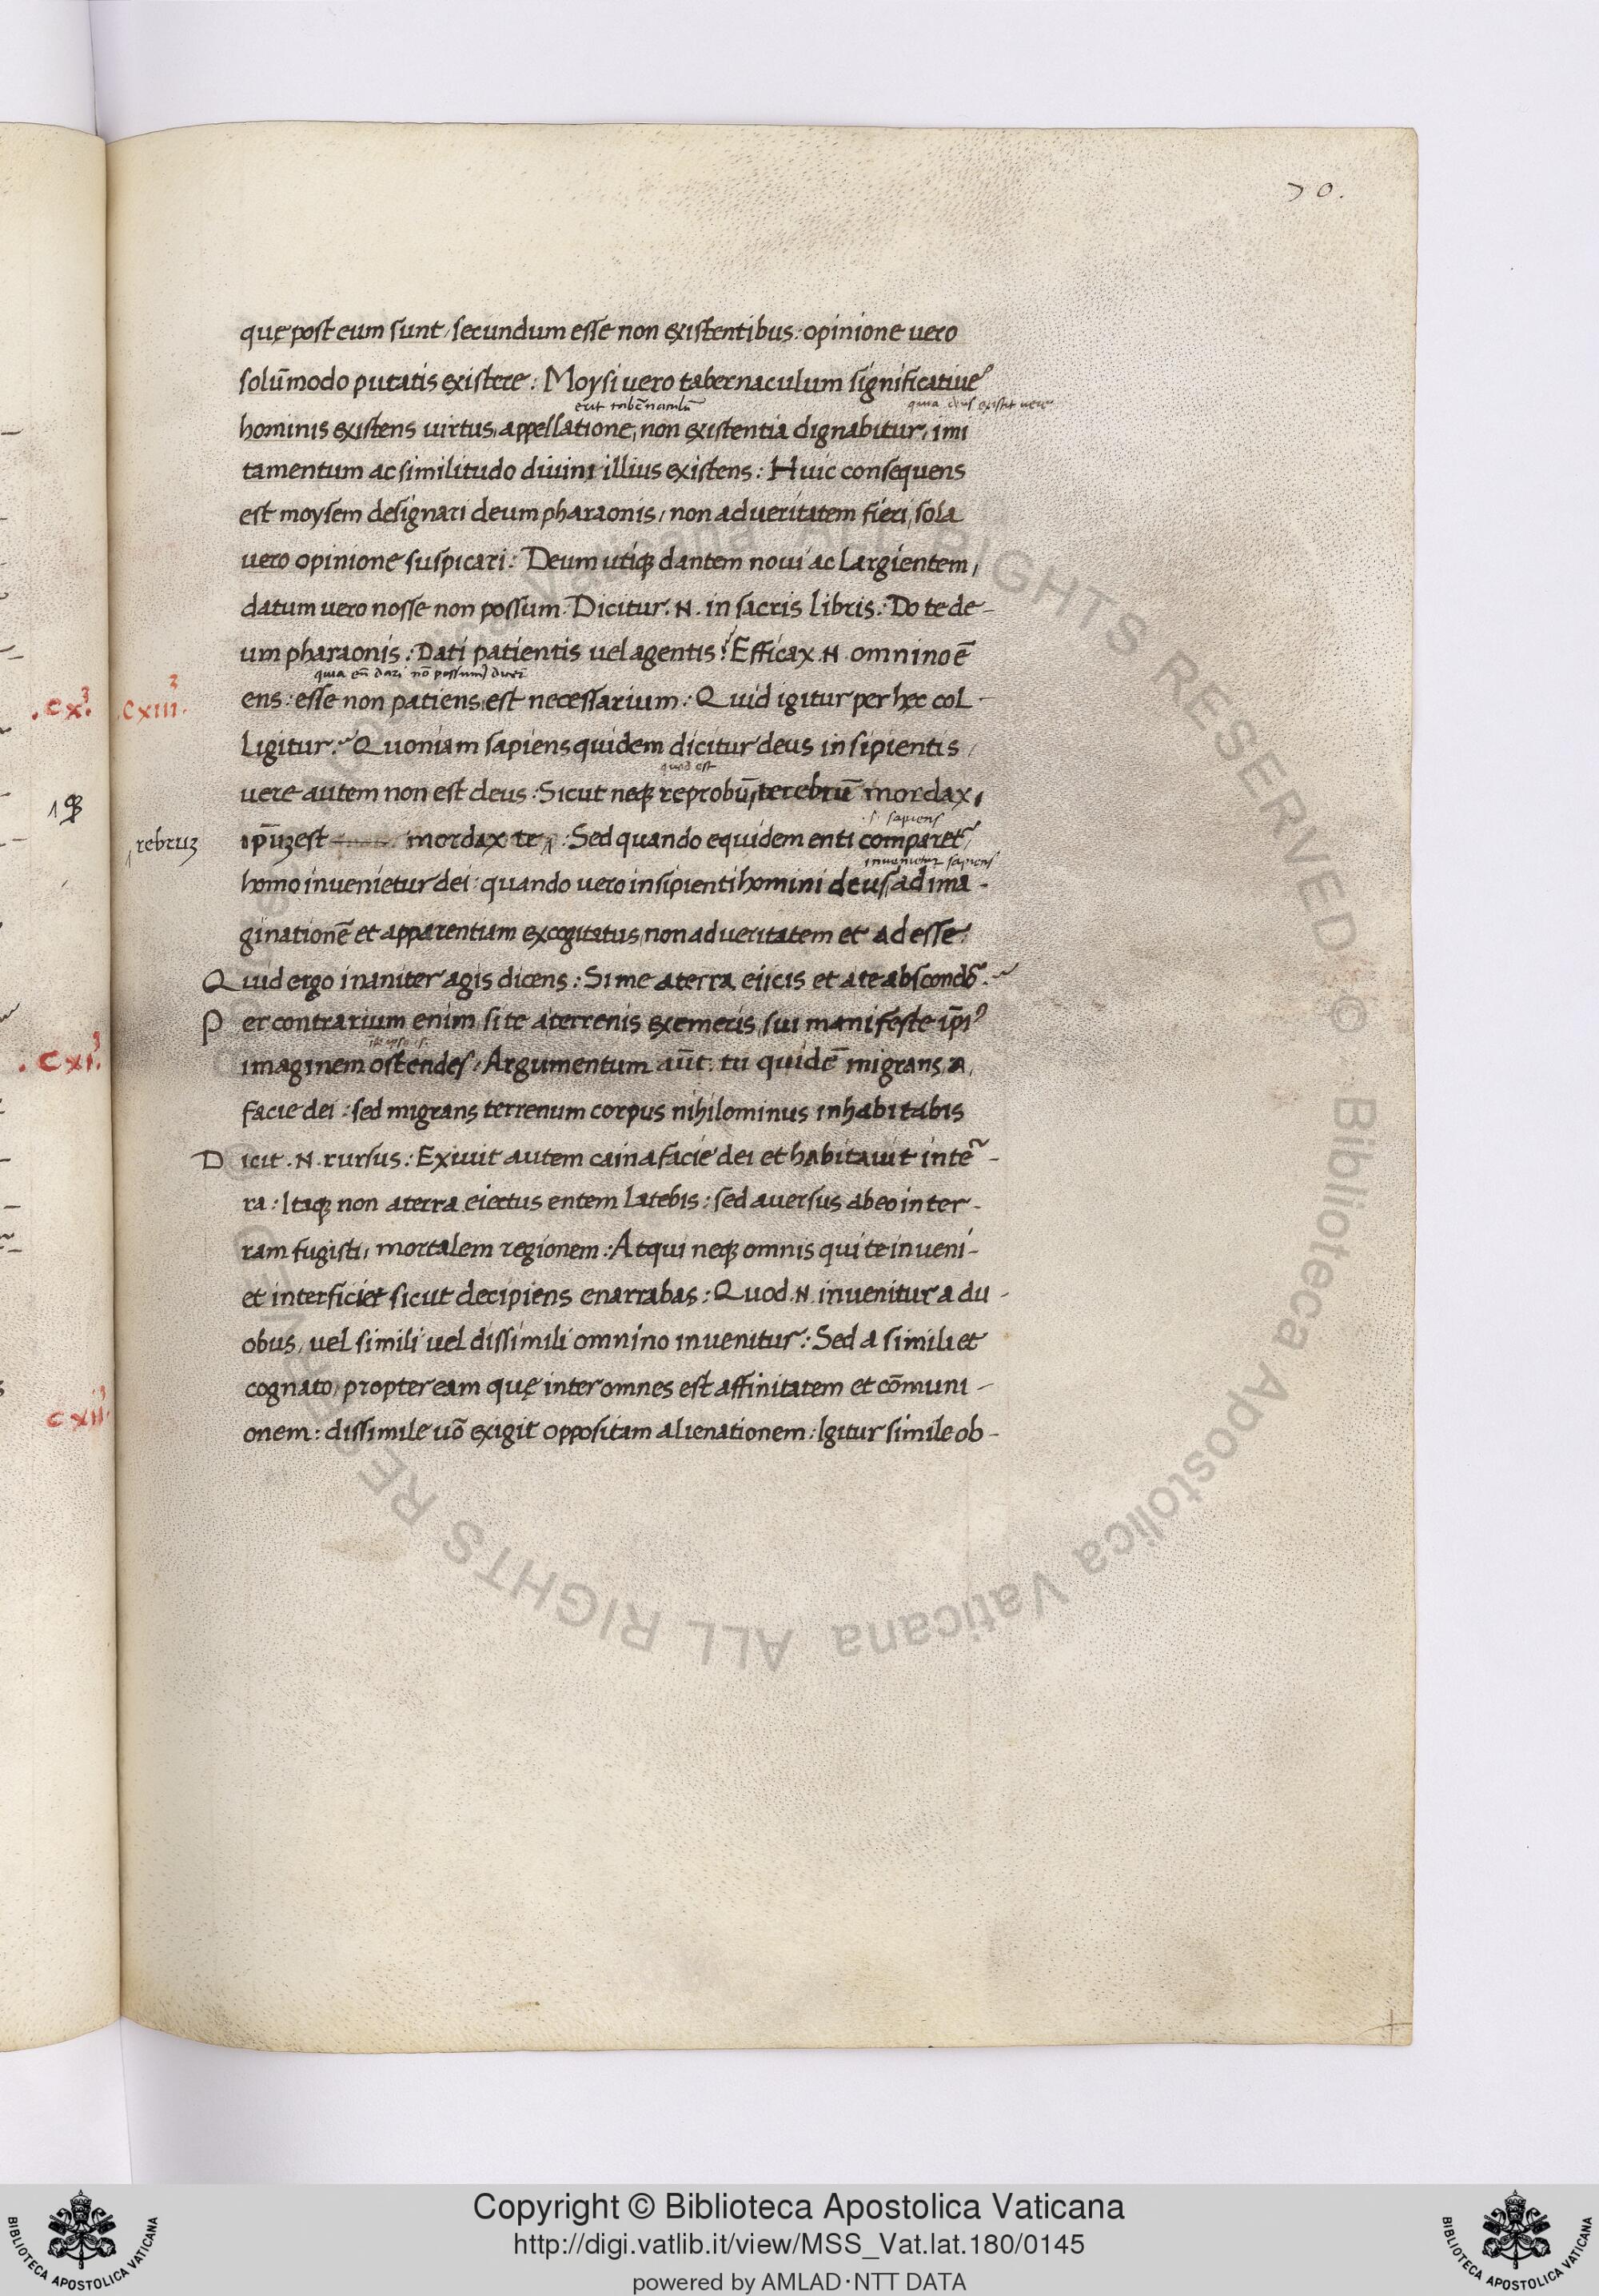 70.
quę post eum sunt, secundum esse non existentibus: opinione vero
solūmodo putatis existere: Moysi vero tabernaculum significative
erit tabernaculū
quia deus existit vere
hominis existens virtus, appellatione, non existentia dignabitur, imi
tamentum ac similitudo divini illius existens: Huic consequens
est moysem designari deum pharaonis, non ad veritatem fieri, sola
vero opinione suspicari: Deum utiq; dantem novi ac largientem,
datum vero nosse non possum. Dicitur .N. in sacris libris: Do te de-
um pharaonis: Dati patientis vel agentis: Efficax .N. omnino ē
quia
dari nō possum
.CX.
.CXIII.
ens: esse non patiens, est necessarium: Quid igitur per hęc col-
ligitur: Quoniam sapiens quidem dicitur deus insipientis,
quod est
vere autem non est deus: Sicut neq; reprobū, terebrū mordax,
.s. sapiens
rebruz
ip̄uz est mordax te: Sed quando equidem enti comparet,
invenietur sapiens
homo invenietur dei: quando vero insipienti homini deus, ad ima-
ginationē et apparentiam excogitatus, non ad veritatem et ad esse:
Quid ergo inaniter agis dicens: Si me a terra eiicis et a te abscondo͂.
Per contrarium enim, si te a terrenis exemeris, sui manifeste ip̄i'
.CXI.
imaginem ostendes: Argumentum aūt. tu quidē migrans a,
facie dei: sed migrans terrenum corpus nihilominus inhabitabis
Dicit .N. rursus: Exivit autem cain a facie dei et habitavit in te͂-
ra: Itaq; non a terra eiectus entem latebis: sed aversus ab eo in ter-
ram fugisti, mortalem regionem: Atqui neq; omnis qui te inveni-
et interficiet sicut decipiens enarrabas: Quod .N. invenitur a du-
obus, vel simili vel dissimili omnino invenitur: Sed a simili et
cognato, propter eam quę inter omnes est affinitatem et cōmuni-
CXII
onem: dissimile vō exigit oppositam alienationem: Igitur simile ob-
© Biblioteca Apostolica Vaticana ALL RIGHTS RESERVED
Copyright © Biblioteca Apostolica Vaticana
http://digi.vatlib.it/view/MSS_Vat.lat.180/0145
powered by AMLAD·NTT DATA
BIBLIOTECA APOSTOLICA VATICANA
BIBLIOTECA APOSTOLICA VATICANA